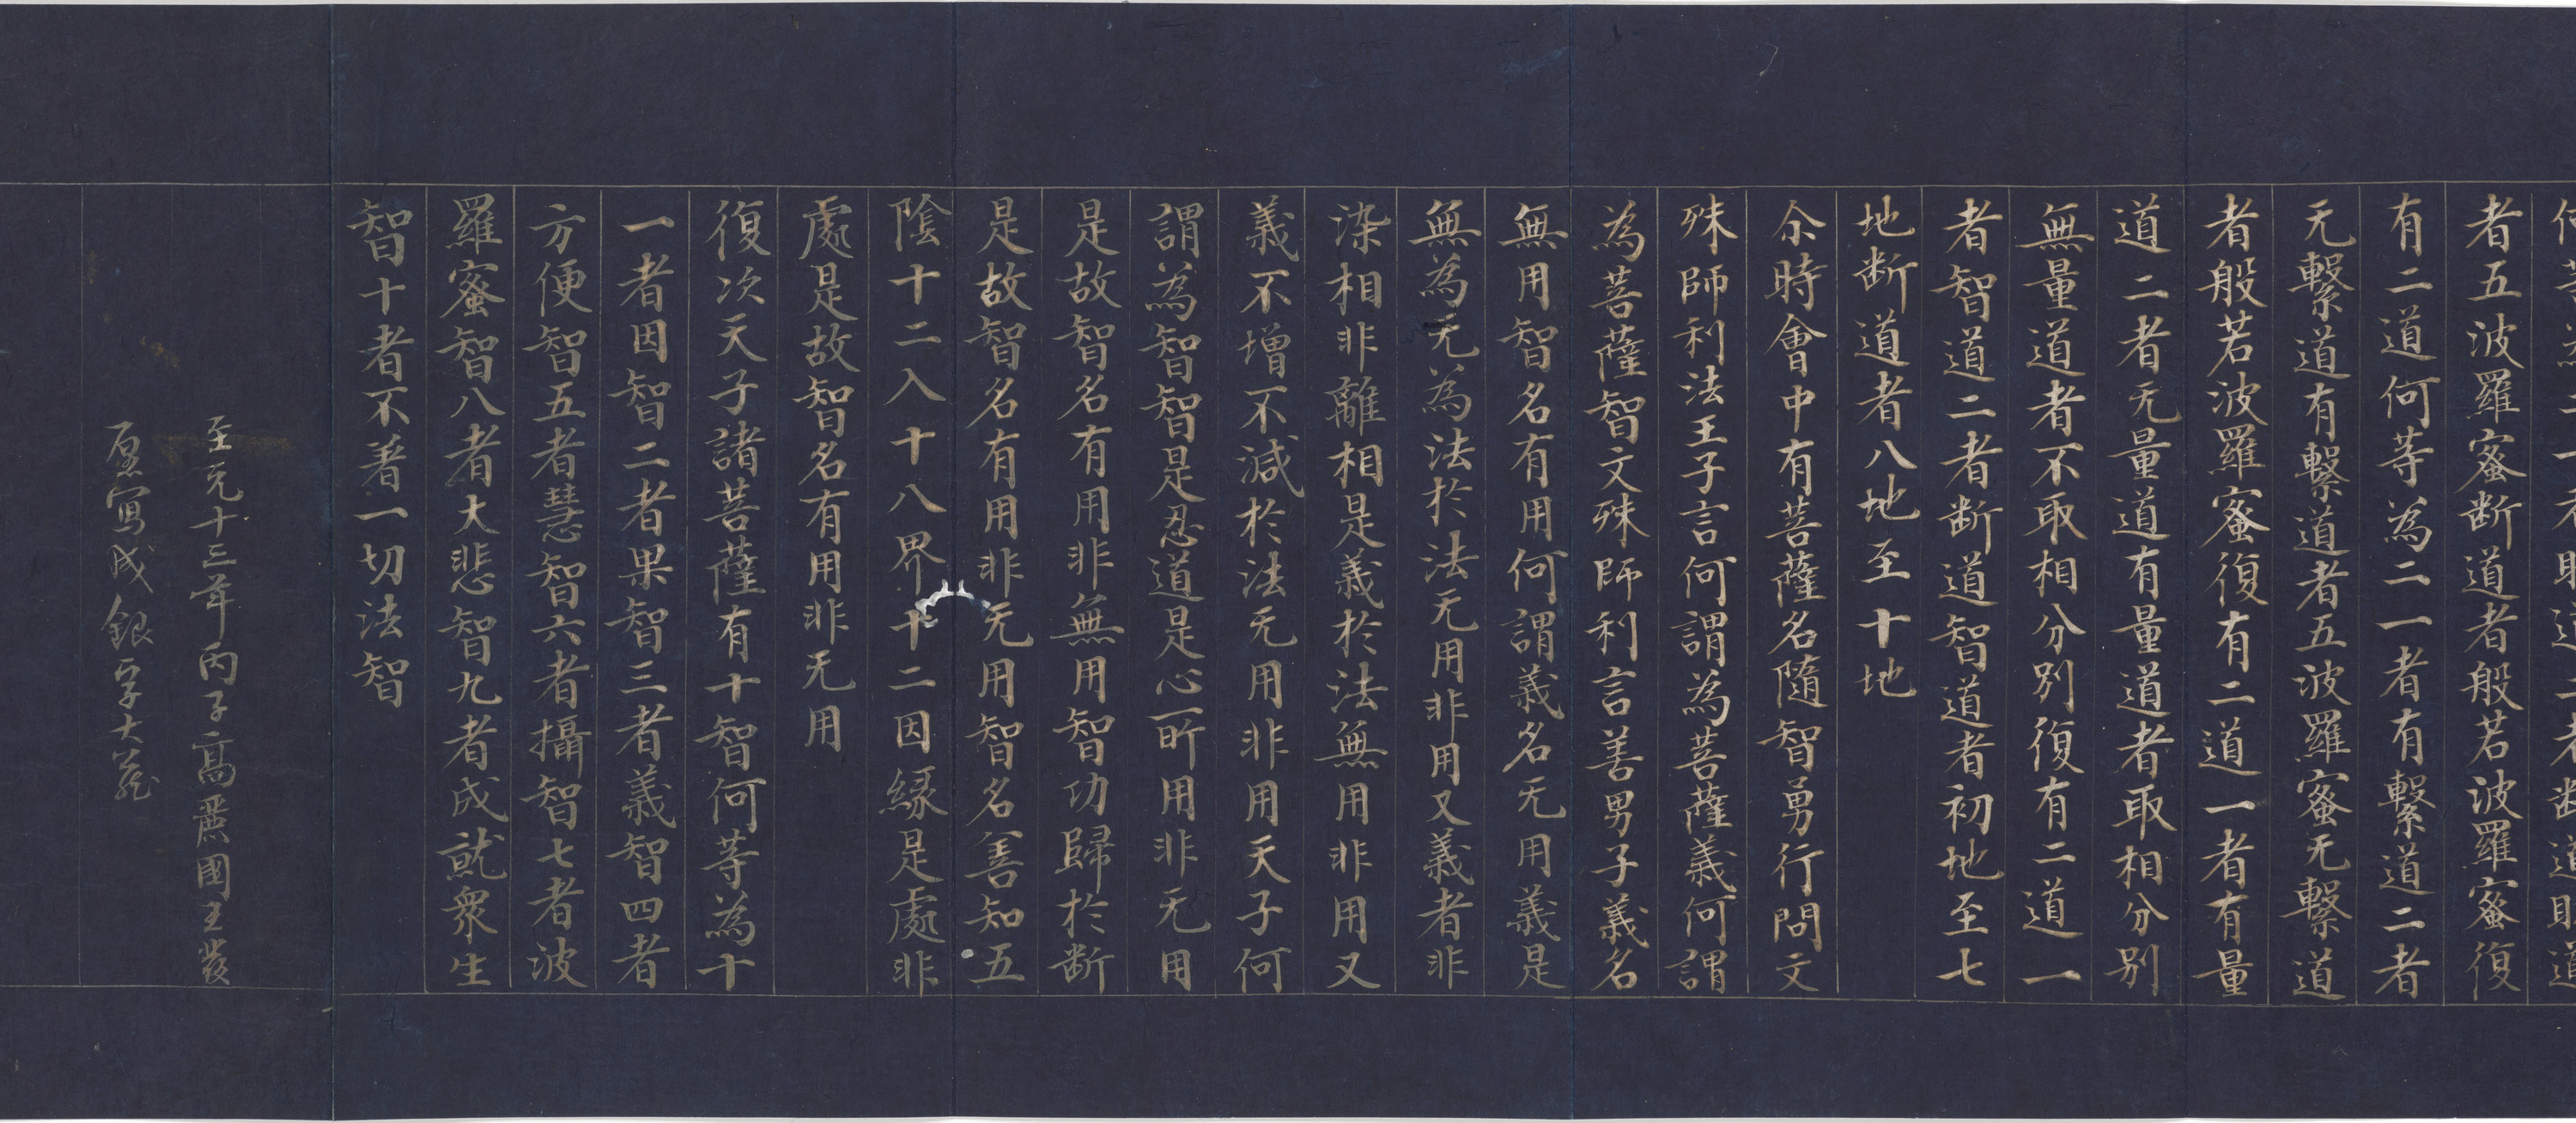 者五波羅蜜断道者般若波羅蜜復
有二道何等為二一者有繫道二者
无繫道有繫道者五波羅蜜无繫道
者般若波羅蜜復有二道一者有量
道二者无量道有量道者取相分別
無量道者不取相分別復有二道一
者智道二者断道智道者初地至七
地断道者八地至十地
尒時會中有菩薩名隨智勇行問文
殊師利法王子言何謂為菩薩義何謂
為菩薩智文殊師利言善男子義名
無用智名有用何謂義名无用義是
無為无為法於法无用非用又義者非
染相非離相是義於法無用非用又
義不增不減於法无用非用天子何
謂為智智是忍道是心一所用非无用
是故智名有用非無用智功歸於断
是故智名有用非无用智名善知五
陰十二入十八界十二因緣是處非
處是故智名有用非无用
復次天子諸菩薩有十智何等為十
一者因智二者果智三者義智四者
方便智五者慧智六者攝智七者波
羅蜜智八者大悲智九者成就衆生
智十者不著一切法智
至元十三年丙子高麗國王發
願寫成銀字大藏